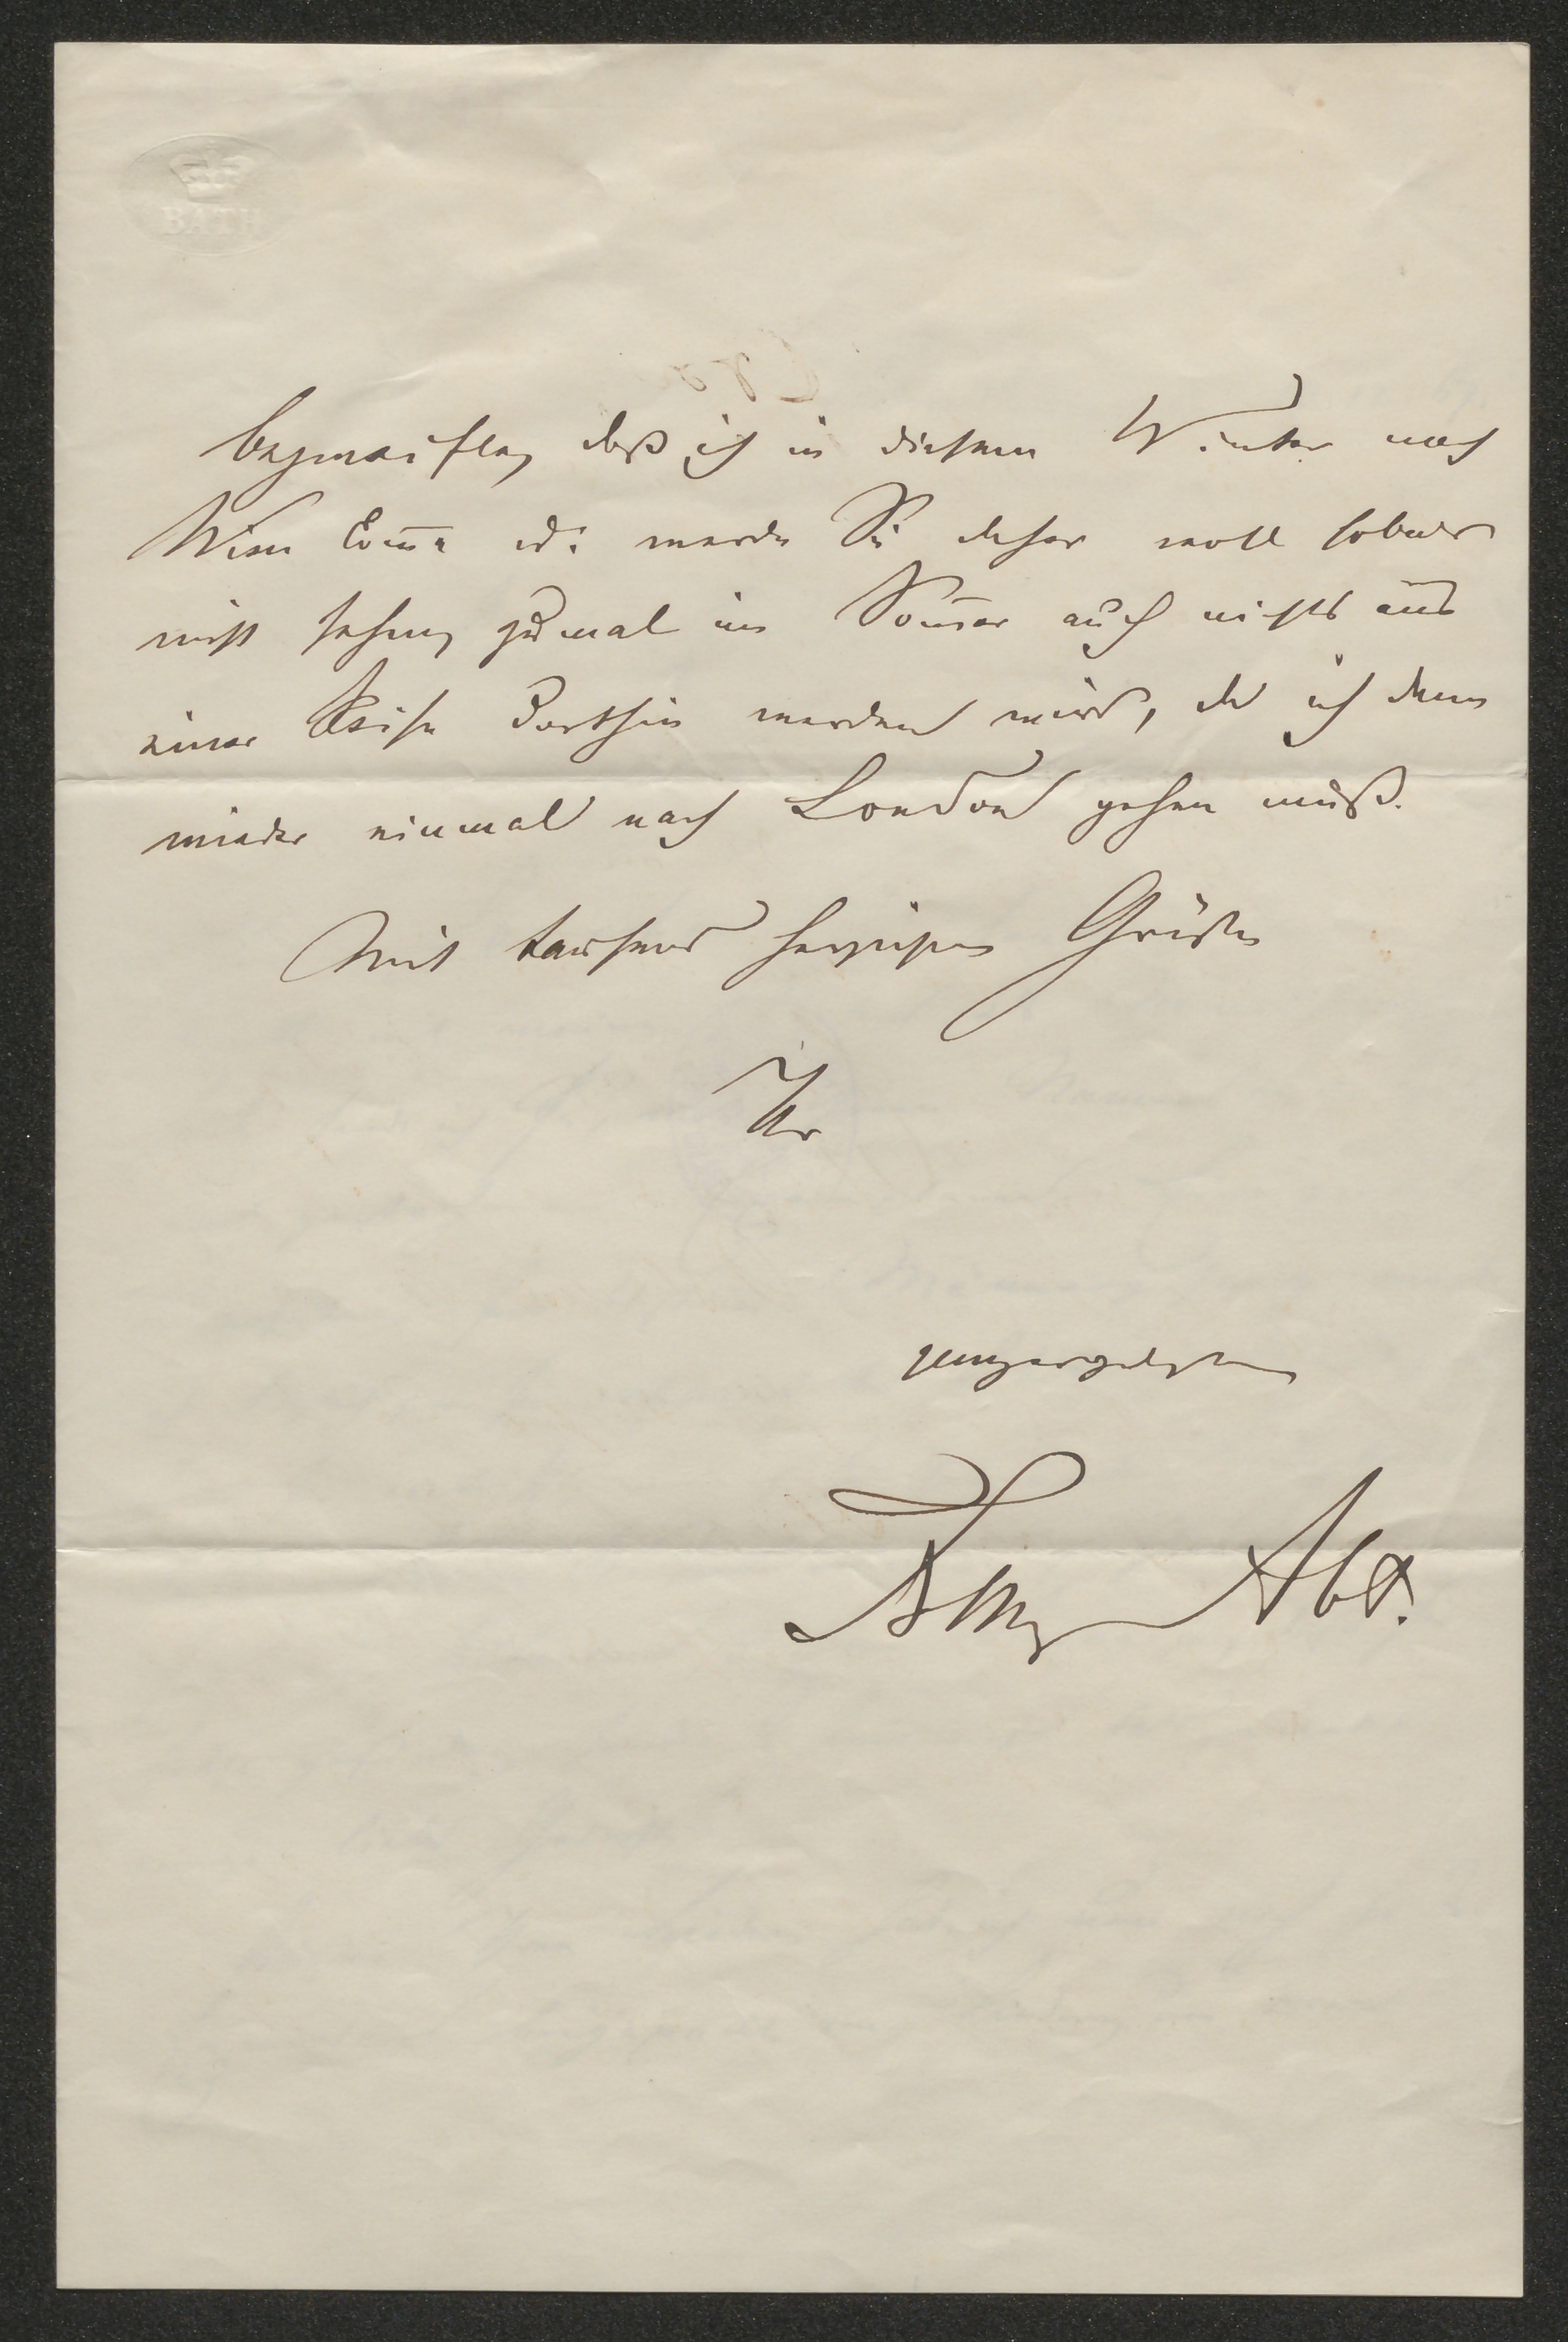 BATH
bezweifle, daß ich in diesem Winter nach
Wien kom̄e u. werde Sie daher wohl sobald
nicht sehen, zumal im Som̄er auch nichts aus
einer Reise dorthin werden wird, da ich dann
wieder einmal nach London gehen muß.
Mit tausend herzlichen Grüßen
Ihr
ganz ergebener
Franz Abt.